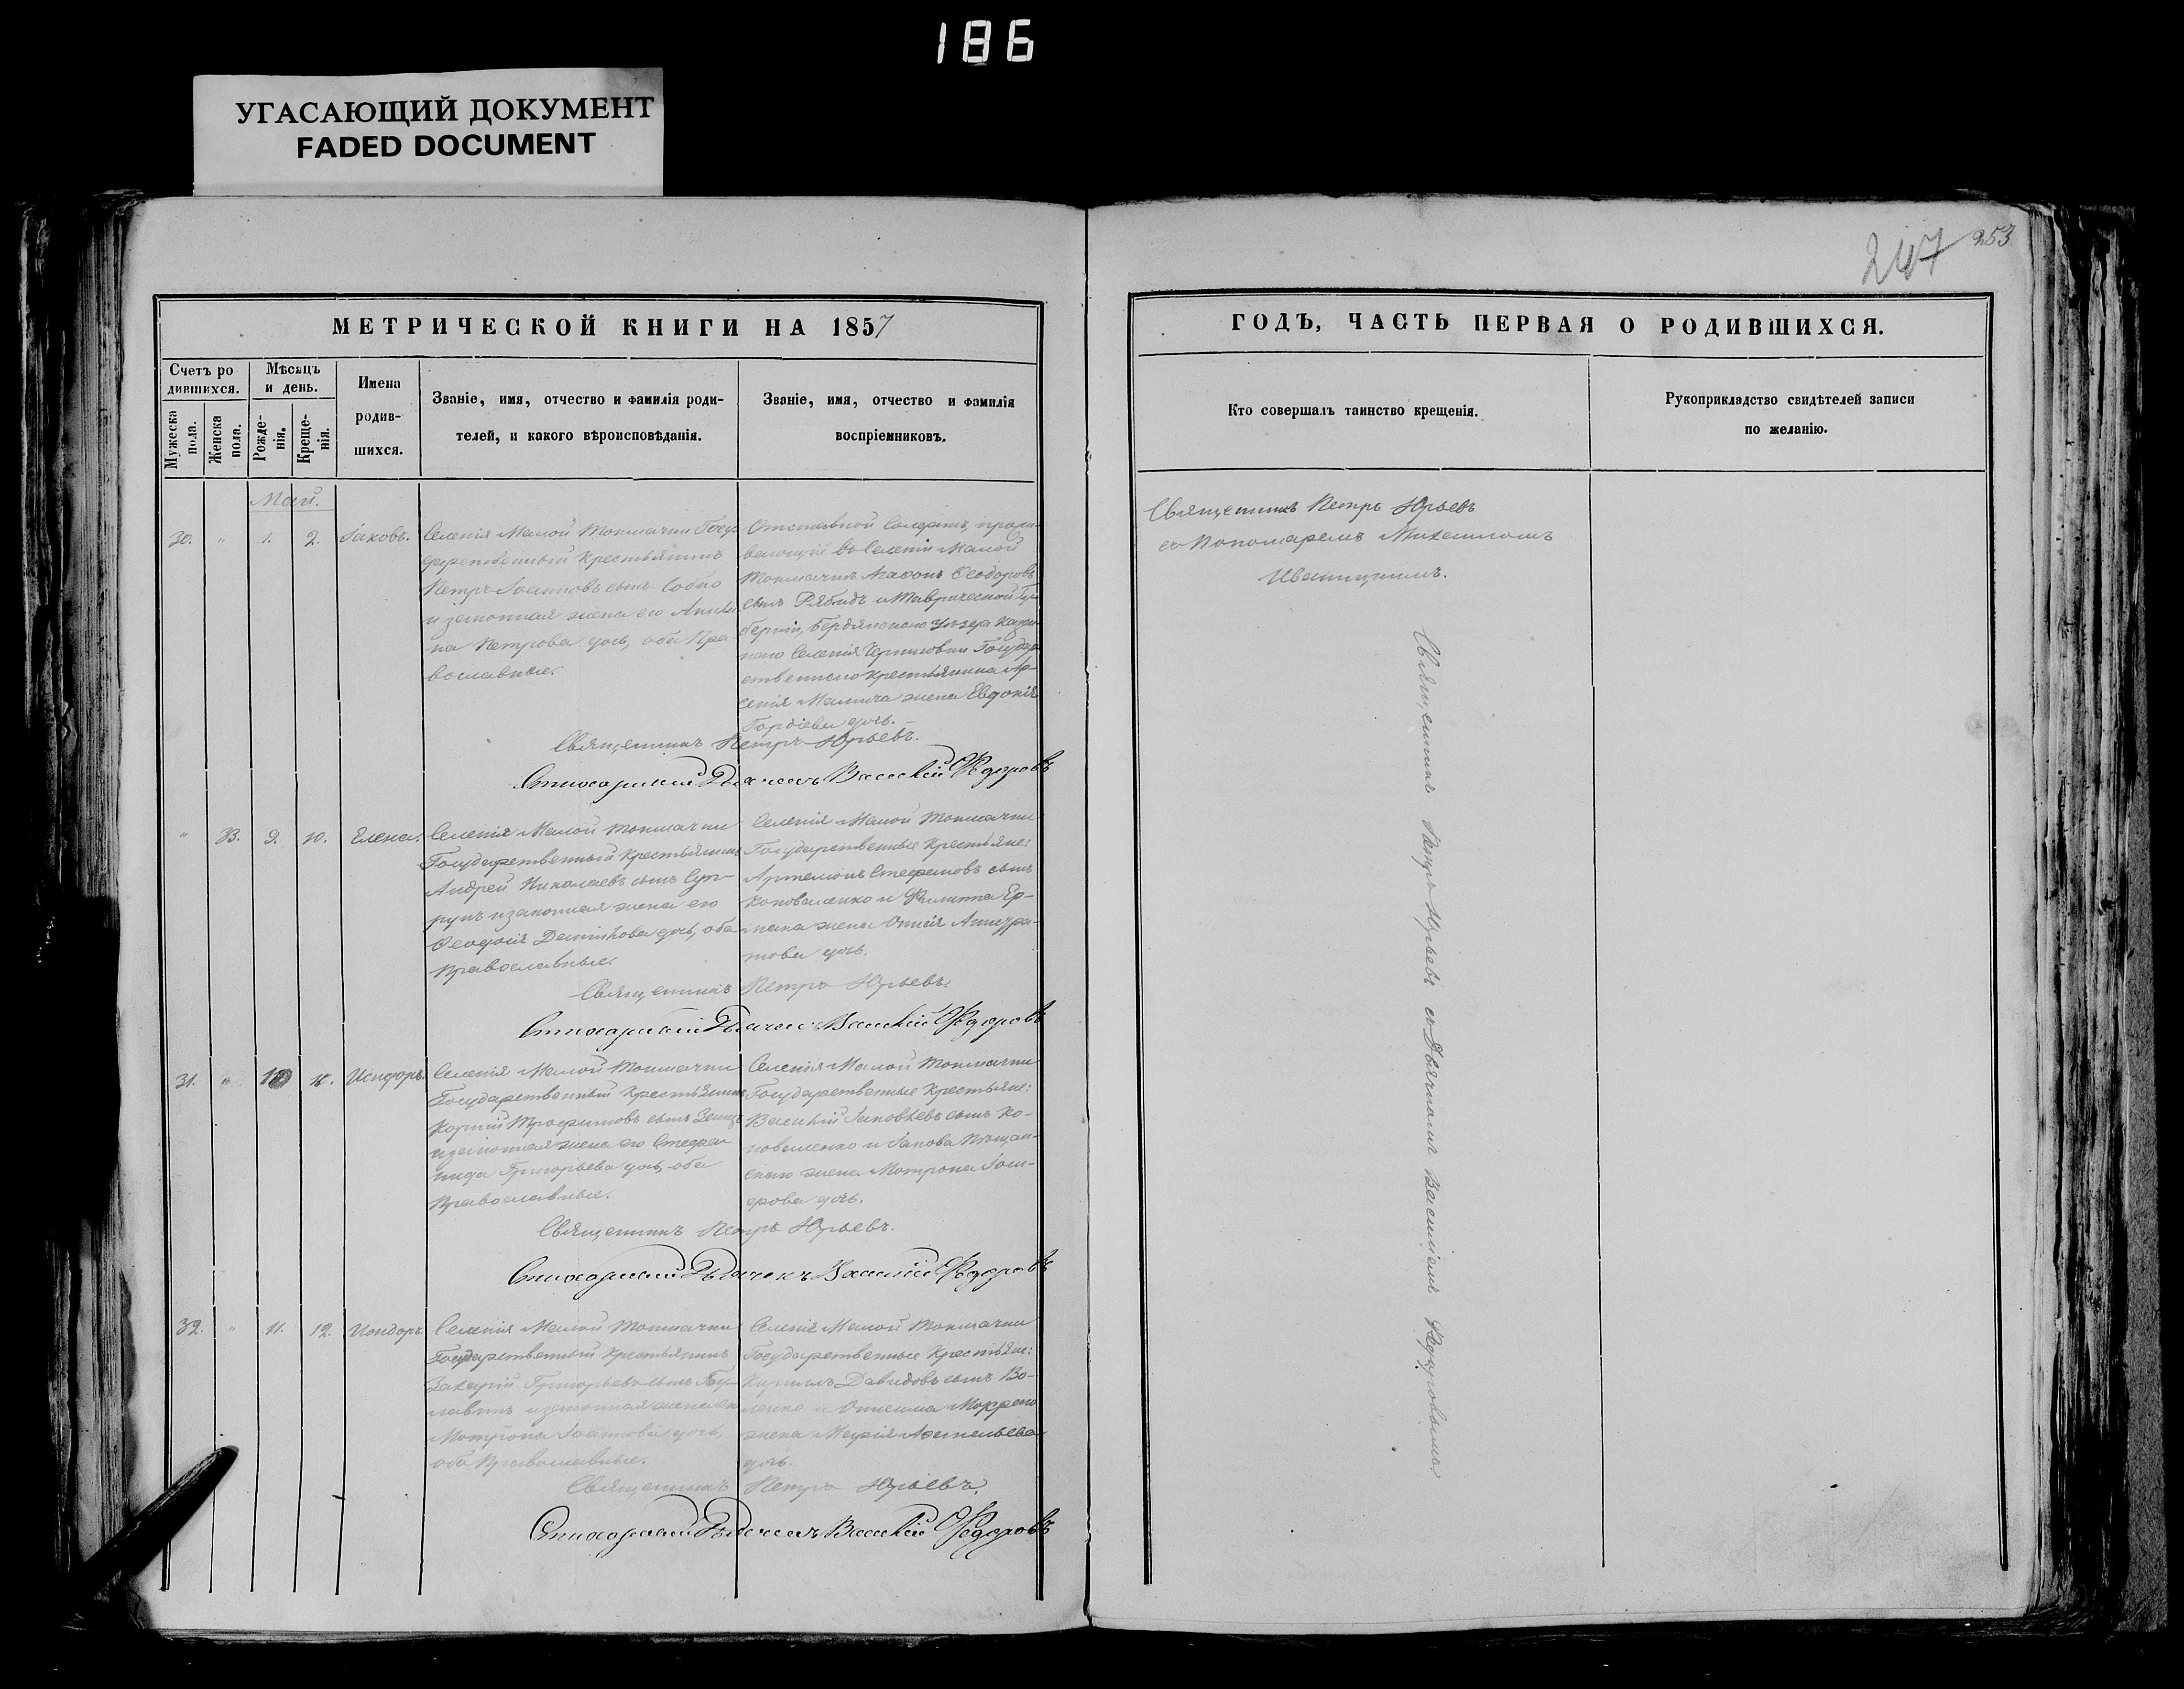 186
УГАСАЮЩИЙ ДОКУМЕНТ
FADED DOCUMENT
247 253
МЕТРИЧЕСКОЙ КНИГИ НА 1857
Счетъ ро
дившихся.
Мужеска пола.
Женска пола.
Мѣсяцъ
и день.
Рожде-
нія.
Креще-
нія.
Имена
родив-
шихся.
Званіе, имя, отчество и фамилія роди-
телей, и какого вѣроисповѣданія.
Званіе, имя, отчество и фамилія
воспріемниковъ.
Май.
30. " 1. 2. Іаковъ.
Селенія Малой Токмачки Госу-
дарственный Крестьянинъ
Петръ Іоанновъ сынъ
и законная жена его
на Петрова дочь, оба Пра
вославные.
Отставной Солдатъ, прожи
вающій въ Селеніи Малой
Токмачки Агафонъ Ѳеодоровъ
сынъ Рябидъ и Таврической Гу-
берніи, Бердянскаго Уѣзда
Селенія Черниговки Государ
ственнаго Крестьянина Ар-
сенія жена Евдокія
Гордіева дочь.
Священникъ Петръ Юрьевъ.
Стихарный Дьячекъ Василій Ѳедоровъ
" 33. 9. 10. Елена.
Селенія Малой Токмачки
Государственный Крестьянинъ
Андрей Николаевъ сынъ
и законная жена его
Ѳеодосія дочь, оба
Православные.
Селенія Малой Токмачки
Государственные Крестьяне:
Артемонъ Стефановъ сынъ
Коноваленко и Филиппа Ер-
жена
дочь.
Священникъ Петръ Юрьевъ.
Стихарный Дьячекъ Василій Ѳедоровъ
31. " 10 Исидоръ.
Селенія Малой Токмачки
Государственный Крестьянинъ
Корній Трофимовъ сынъ
и законная жена его Стефа
нида Григорьева дочь, оба
Православные.
Селенія Малой Токмачки
Государственные Крестьяне:
Василій Іаковлевъ сынъ Ко-
новаленко и Іакова
жена Мотрона
дочь.
Священникъ Петръ Юрьевъ.
Стихарный Дьячекъ Василій Ѳедоровъ
32. " 11. 12. Исидоръ.
Селенія Малой Токмачки
Государственный Крестьянинъ
Захарій Григорьевъ сынъ
и законная жена его
Мотрона Іоаннова дочь,
оба Православные.
Селенія Малой Токмачки
Государственные Крестьяне:
Кириллъ Давидовъ сынъ
и
жена Марія
дочь.
Священникъ Петръ Юрьевъ.
Стихарный Дьячекъ Василій Ѳедоровъ
ГОДЪ, ЧАСТЬ ПЕРВАЯ О РОДИВШИХСЯ.
Кто совершалъ таинство крещенія.
Рукоприкладство свидѣтелей записи
по желанію.
Священникъ Петръ Юрьевъ
съ Пономаремъ Михаиломъ
Священникъ Петръ Юрьевъ съ Дьячкомъ Василіемъ Ѳедоровымъ